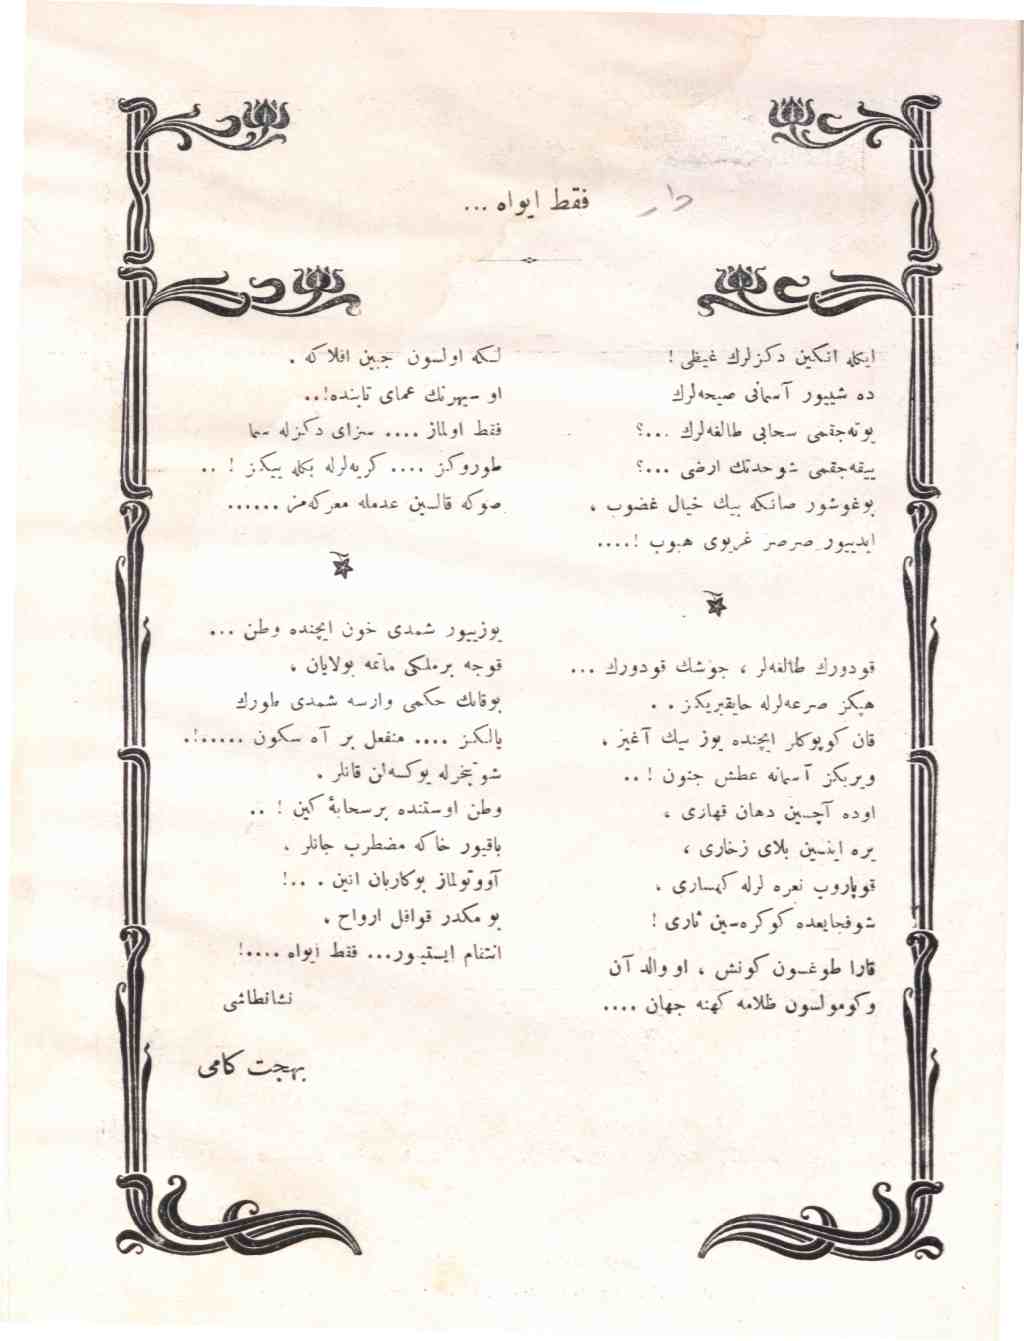 فقط ایواه ...
ایكله انكین دكزلرك غیظی !
ده شییور آسمانی صیحه‌لرك
یوته‌جقمی سحابی طالغه‌لرك ...؟
ییقه‌جقمی شو حدتك ارضی ...؟
بوغوشور صانكه بیك خیال غضوب ،
ایدییور صرصر غریوی هبوب !....
قودورك طالغه‌لر ، جوشك قودورك ...
هپكز صرعه‌لرله حایقیریكز . .
قان كوپوكلر ایچنده یوز بیك آغیز ،
ویریكز آسمانه عطش جنون ! ..
اوده آچسین دهان قهاری ،
یره اینسین بلای زخاری ،
قوپاروب نعره لرله كهساری ،
شو فجایعده كوكره‌سین ناری !
قارا طوغسون كونش ، او والد آن
وكومولسون ظلامه كهنه جهان ....
لكه اولسون جبین افلاكه .
او سپهرتك عمای تابنده!..
فقط اولماز .... سزای دكزله سما
طوروكز .... كریه‌لرله بكله ییكز ! ..
صوكه قالسین عدمله معركه‌مز ......
یوزییور شمدی خون ایچنده وطن ...
قوجه بر ملكی ماتمه بولایان ،
بوقانك حكمی وارسه شمدی طورك
یالكز .... منفعل بر آه سكون .....!.
شو تبخرله یوكسه‌لن قانلر .
وطن اوستنده بر سحابهٔ كین ! ..
باقیور خاكه مضطرب جانلر .
آووتولماز بوكاربان انین . ..!
بو مكدر قوافل ارواح ،
انتقام ایستیور... فقط ایواه ....!
نشانطاشی
بهجت كامی